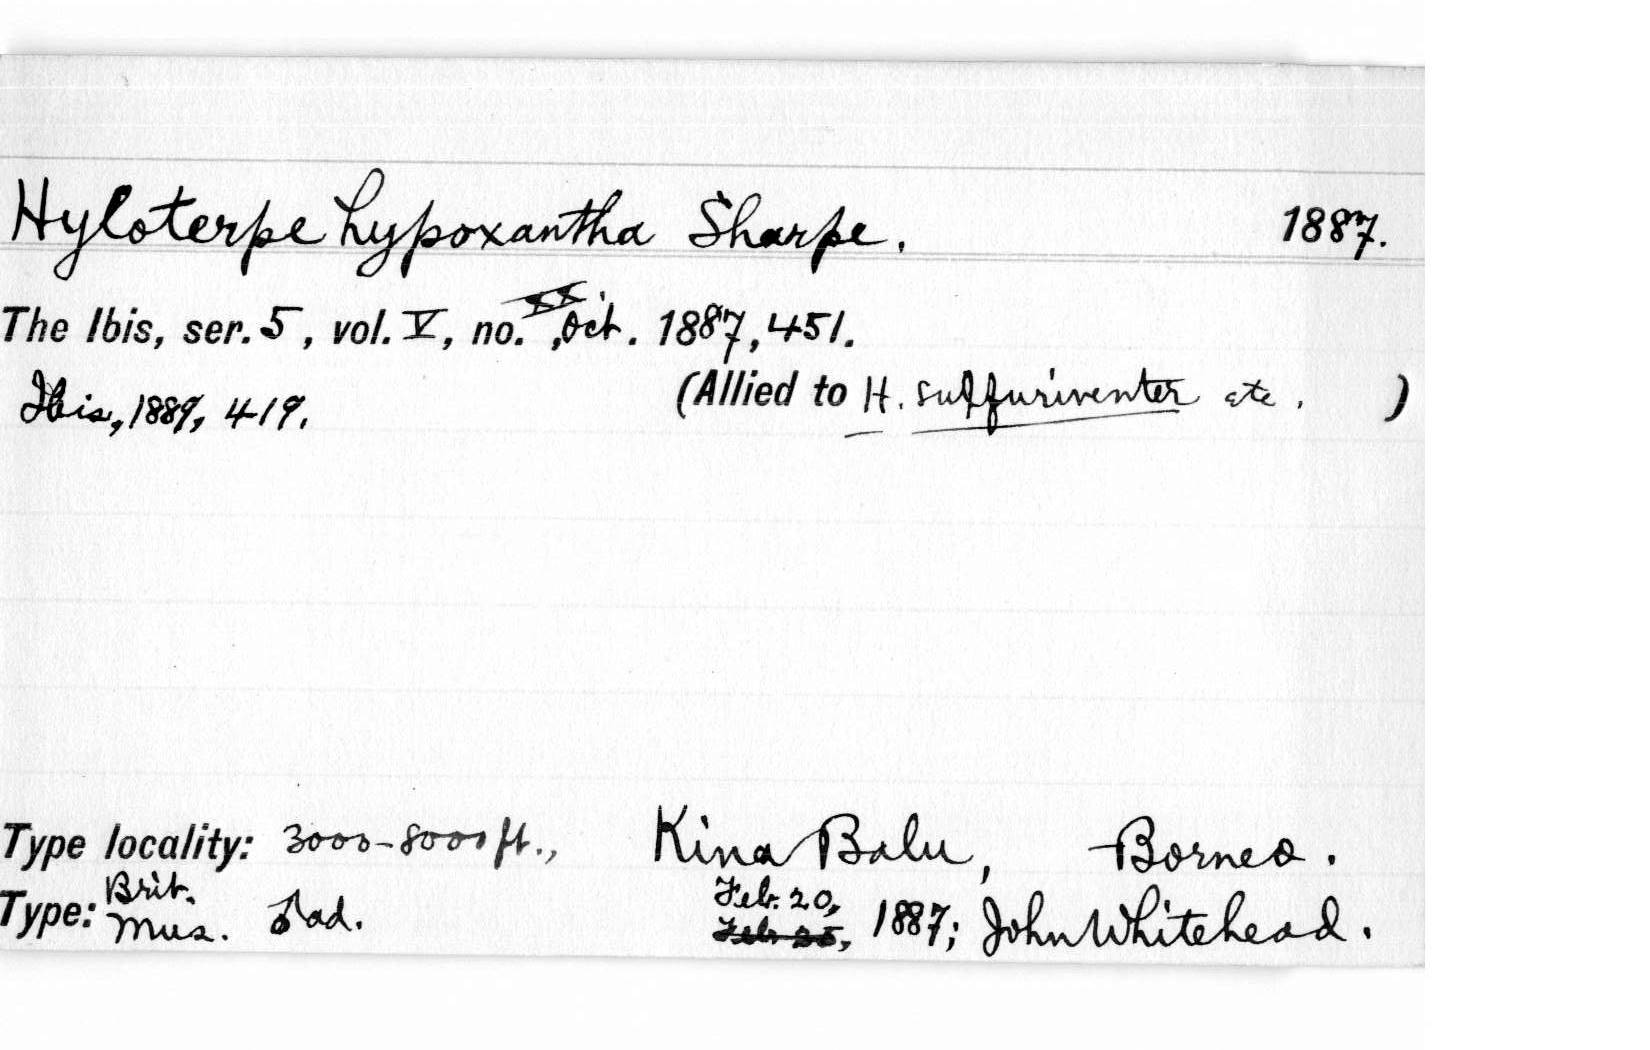 Hyloterpe hypoxantha Sharpe. 1887.
The Ibis, ser. 5, vol. V, no. XX, Oct. 1887, 451.
Ibis, 1889, 419. (Allied to H. sulfuriventer etc. )
Type locality: 3000-8000 ft., Kina Balu, Borneo.
Type: Brit. Mus. ♂ ad. Feb. 20, Feb 25, 1887; John Whitehead.